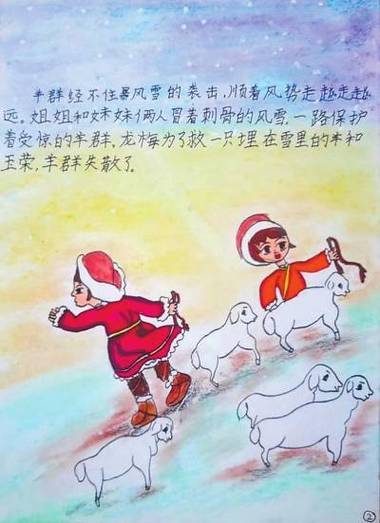 羊群经不住暴风雪的袭击,顺着风势走越走越
远。姐姐和妹妹俩人冒着刺骨的风雪,一路保护
着受惊的羊群,龙梅为了救一只埋在雪里的羊和
玉荣,羊群失散了。
②